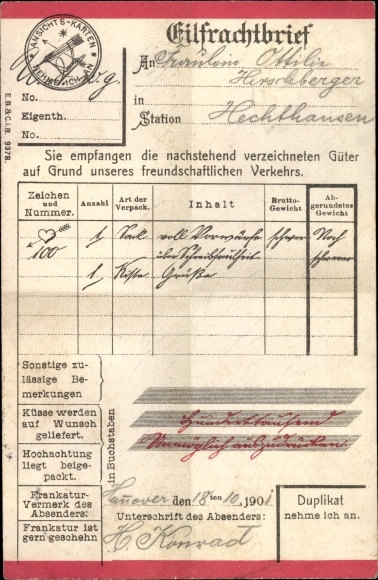 ANSICHTS-KARTEN
NEHME ICH AN
Eilfrachtbrief
An Fräulein Ottilie
Hirschberger
in
Station Hechthausen
No.
Eigenth.
No.
E.B.&C.i.B. 9379.
Sie empfangen die nachstehend verzeichneten Güter
auf Grund unseres freundschaftlichen Verkehrs.
Zeichen und Nummer. Anzahl Art der Verpack. Inhalt Brutto-Gewicht Abgerundetes Gewicht
100 1 Sack voll Vorwürfe schwer Noch
über Schreibfaulheit schwerer
1 Kiste Grüße
Sonstige zu-
lässige Be-
merkungen
Küsse werden
auf Wunsch
geliefert.
Hochachtung
liegt beige-
packt.
in Buchstaben
Hunderttausend
Unmöglich auszudrücken.
Frankatur-
Vermerk des
Absenders:
Frankatur ist
gern geschehn
Hannover den 18ten 10. 1901
Unterschrift des Absenders:
H Konrad
Duplikat
nehme ich an.